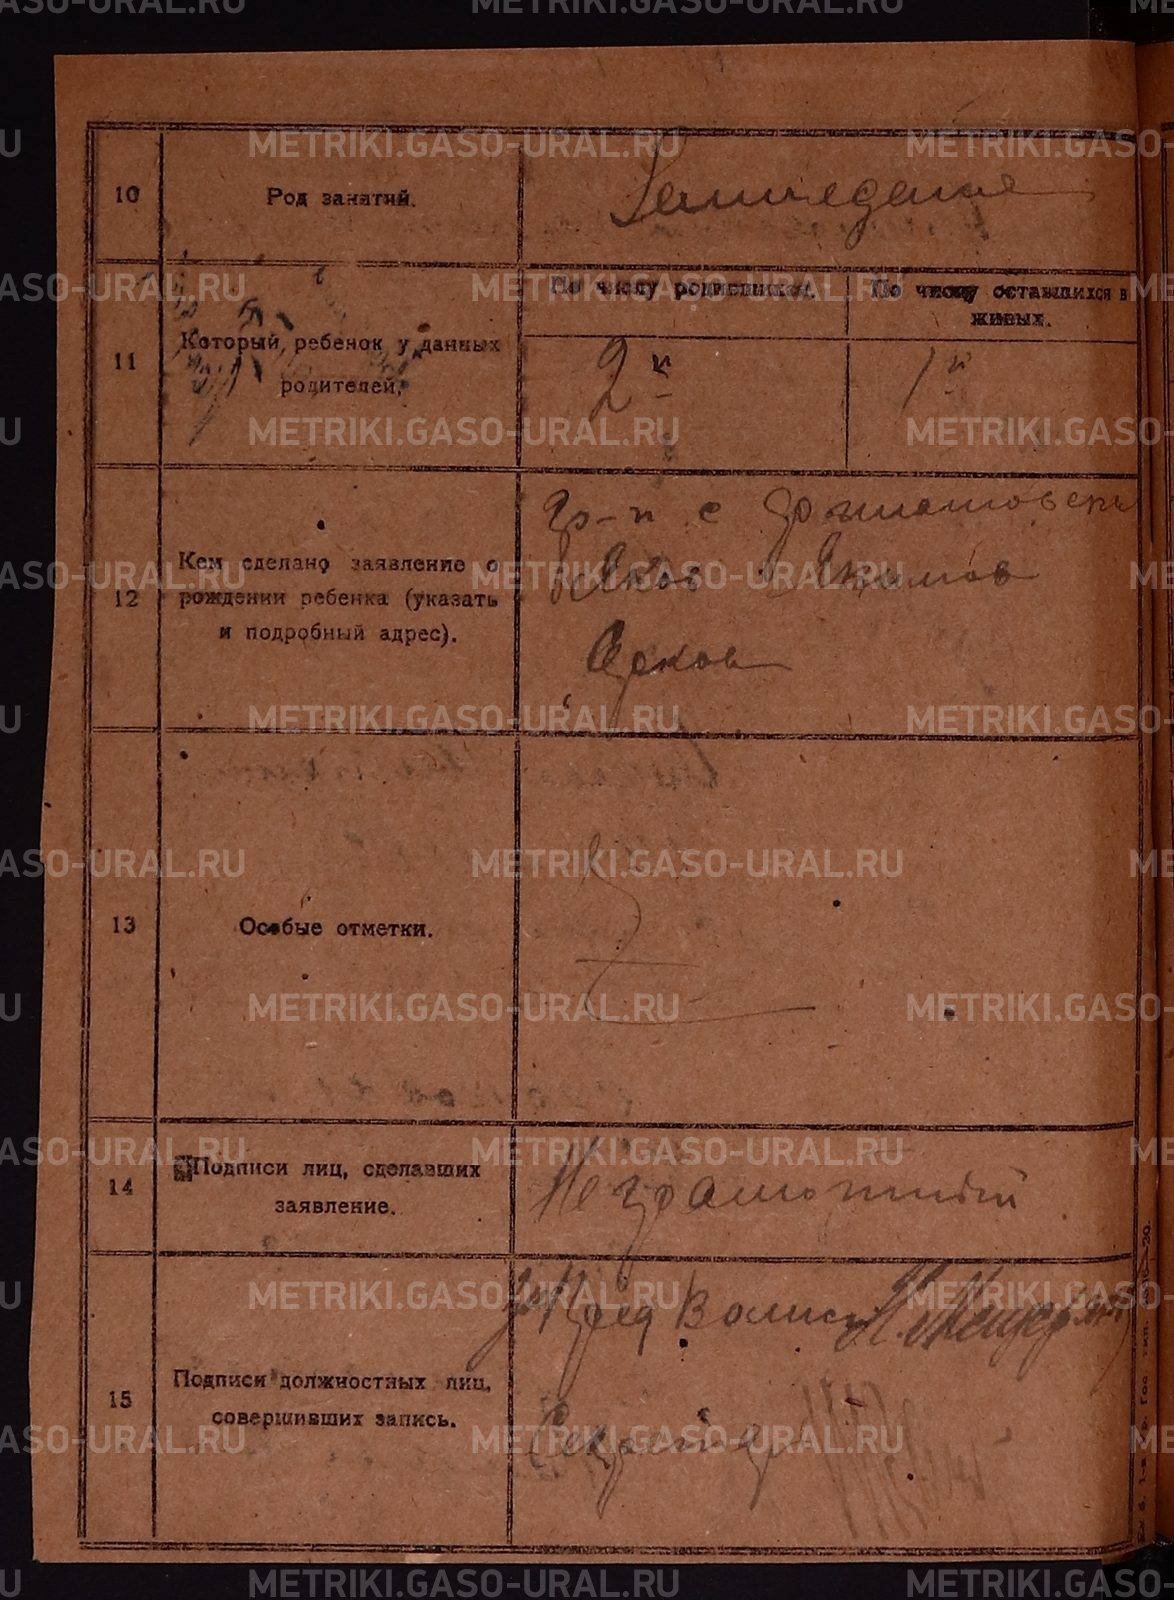 10
Род занятий.
11
Который ребенок у данных
родителей.
По числу родившихся.
По числу оставшихся в
живых.
2й
1й
12
Кем сделано заявление о
рождении ребенка (указать
и подробный адрес).
гр-н с
Яков Якимов
13
Особые отметки.
14
Подписи лиц, сделавших
заявление.
Неграмотный
15
Подписи должностных лиц,
совершивших запись.
Пред Волис
Секретарь
METRIKI.GASO-URAL.RU